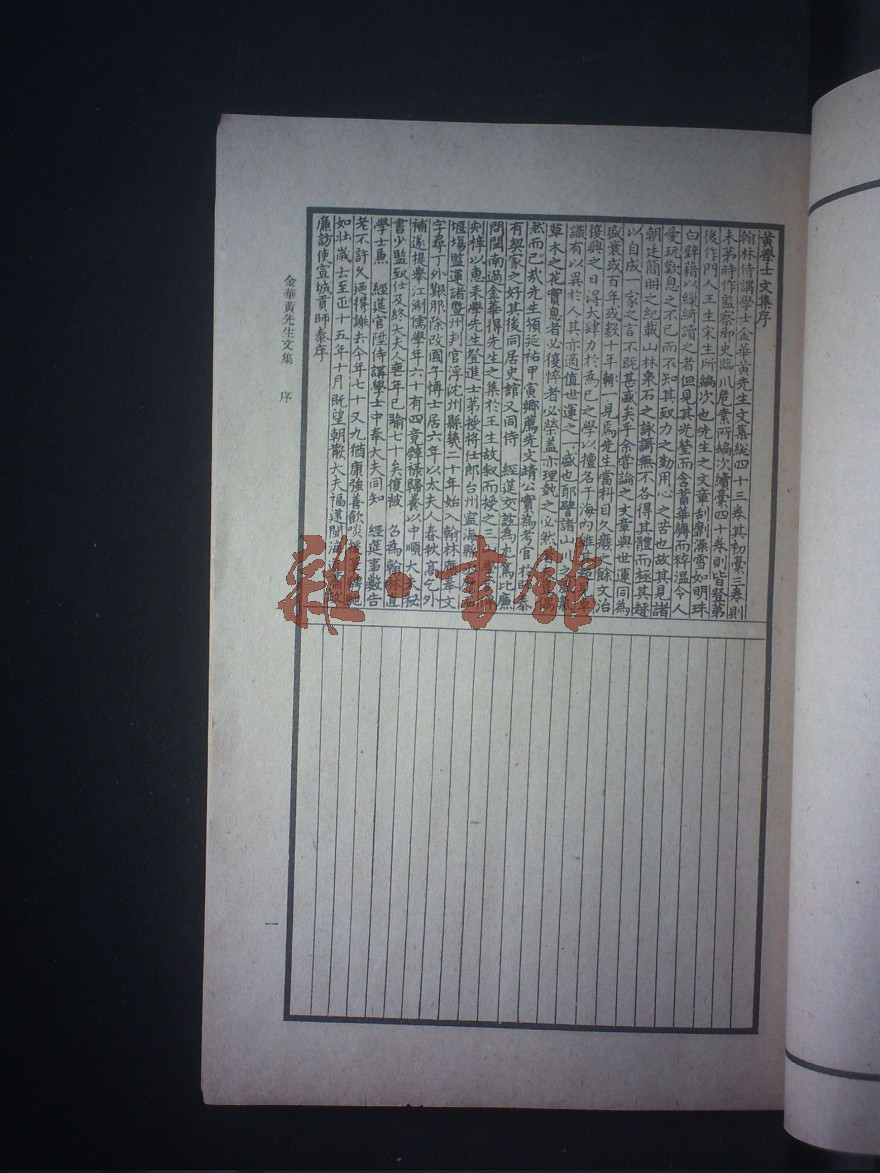 黄學士文集序
翰林侍講學士金華黄先生文集總四十三卷其初藁三卷則
未第時作監察御史臨川危素所編次續藁四十卷則皆登第
後作門人王生宋生所編次也先生之文章刮劘澡雪如明珠
白璧藉以繅繢讀之者但見其光瑩而含蓄華縟而粹温令人
愛玩歎息之不已而不知其致力之勤用心之苦也故其見諸
朝廷簡冊之紀載山林泉石之詠謌無不各得其體而極其趣
以自成一家之言不既甚盛矣乎余嘗論之文章與世運同為
盛衰或百年或數十年輒一見焉先生當科目久廢之餘文治
復興之日得大肆力於為己之學以擅名于海內
識有以異於人其亦適值世運之一盛也耶譬諸山川之
草木之花實息者必復悴者必榮蓋亦理埶之必然
然而已哉先生領延祐甲寅鄉薦先文靖公實為考官於師泰
有契家之好其後同居史館又同侍 經筵交誼為尤篤比廉
問閩南過金華得先生之集於王生故叙而授之三
刻梓以惠來學先生登進士第授將仕郎台州寧海縣
堰塲監運諸暨州判官浮沈州縣幾二十年始入翰林 應奉文
字尋丁外艱服除改國子博士居六年以太夫人春秋高乞外
補遂提舉江浙儒學年六十有四竟辭禄歸養以中順大夫秘
書少監致仕及終大夫人喪年已踰七十矣復被 召為翰林直
學士兼 經筵官陞侍講學士中奉大夫同知 經筵事數告
老不許久廼得謝去今年七十又九猶康強善飲啖援筆
如壯歲云至正十五年十月既望朝散大夫福建閩海道肅政
廉訪使宣城貢師泰序
金華黄先生文集 序
一
雜·書館